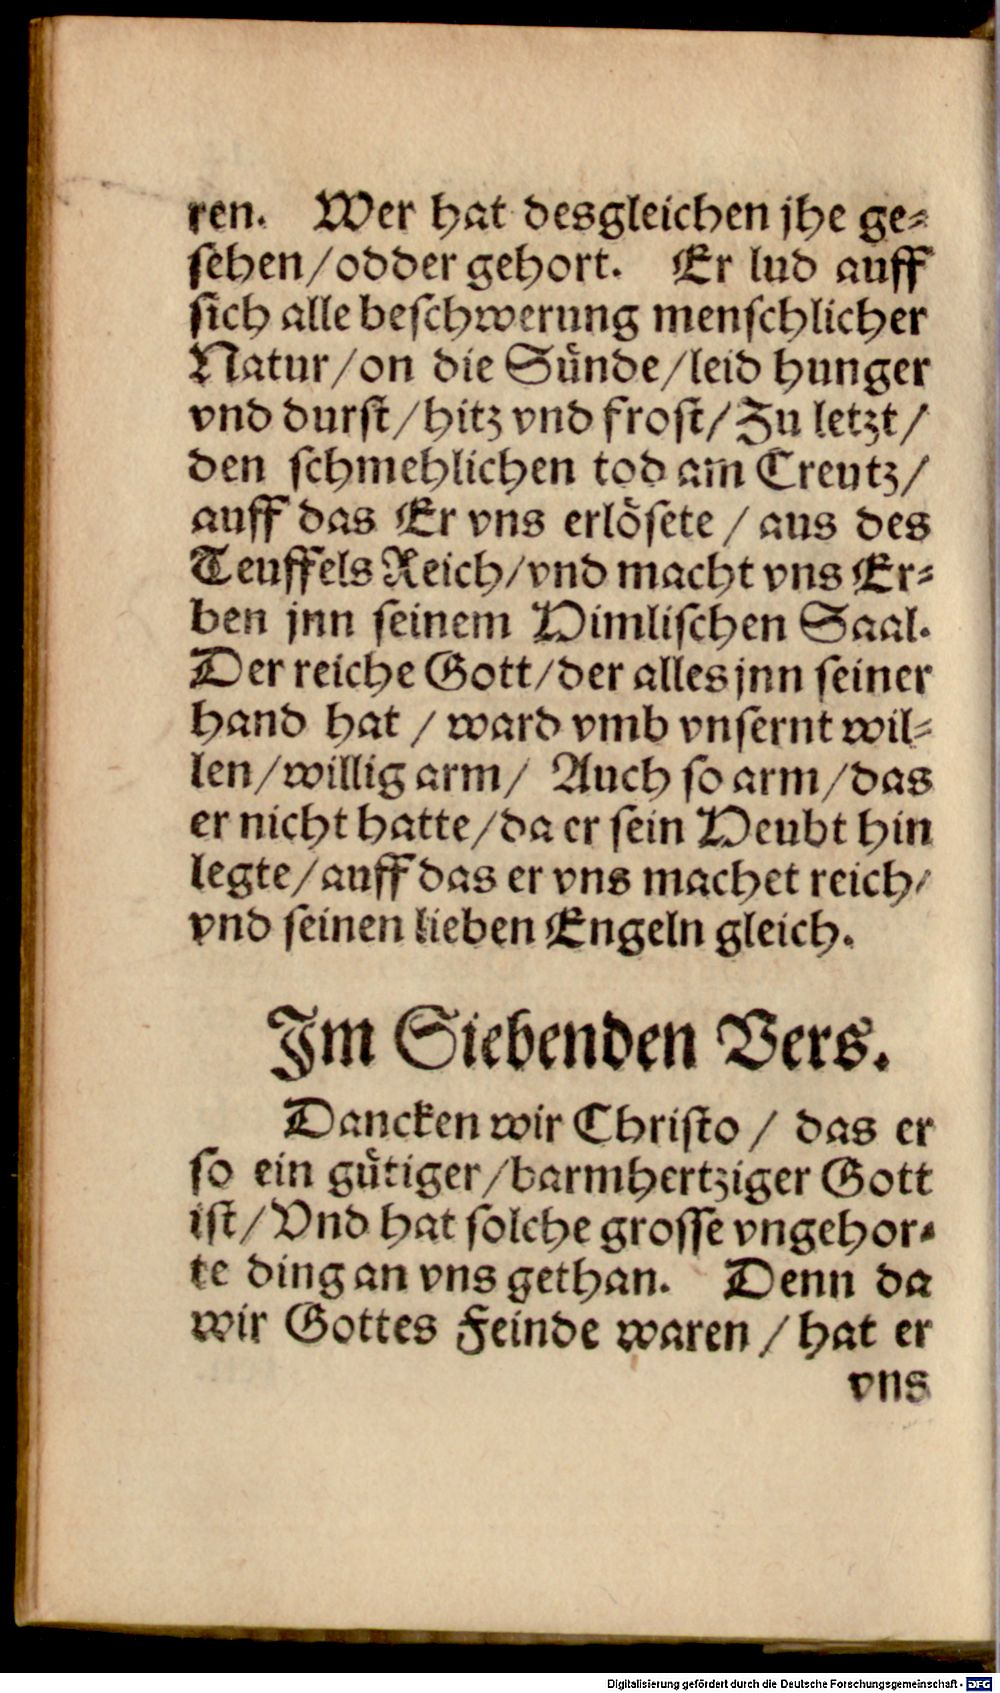 ren. Wer hat desgleichen jhe ge⸗
sehen/odder gehort. Er lud auff
sich alle beschwerung menschlicher
Natur/on die Sünde/leid hunger
vnd durst/hitz vnd frost/Zu letzt/
den schmehlichen tod am Creutz/
auff das Er vns erlösete / aus des
Teuffels Reich/vnd macht vns Er⸗
ben jnn seinem Himlischen Saal.
Der reiche Gott/der alles jnn seiner
hand hat / ward vmb vnsernt wil⸗
len/willig arm/ Auch so arm/das
er nicht hatte/da er sein Heubt hin
legte/auff das er vns machet reich/
vnd seinen lieben Engeln gleich.
Im Siebenden Vers.
Dancken wir Christo / das er
so ein gütiger/barmhertziger Gott
ist/Vnd hat solche grosse vngehor⸗
te ding an vns gethan. Denn da
wir Gottes Feinde waren / hat er
vns
Digitalisierung gefördert durch die Deutsche Forschungsgemeinschaft - DFG